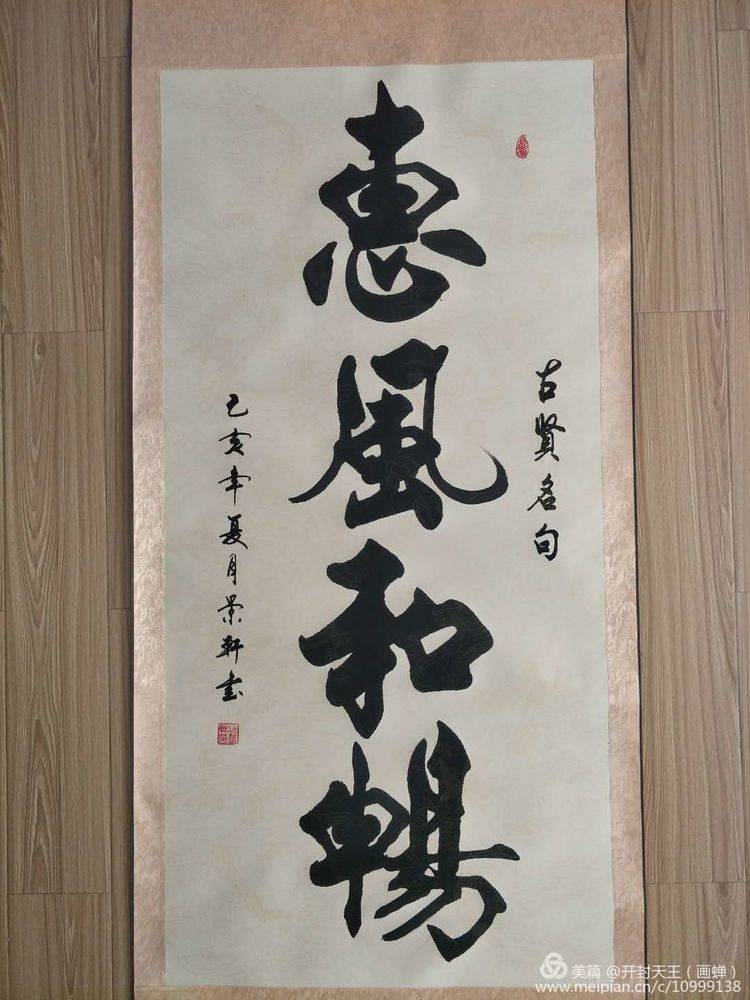 古贤名句
惠風和暢
己亥年夏月景轩书
美篇 @开封天王（画蝉）
www.meipian.cn/c/10999138